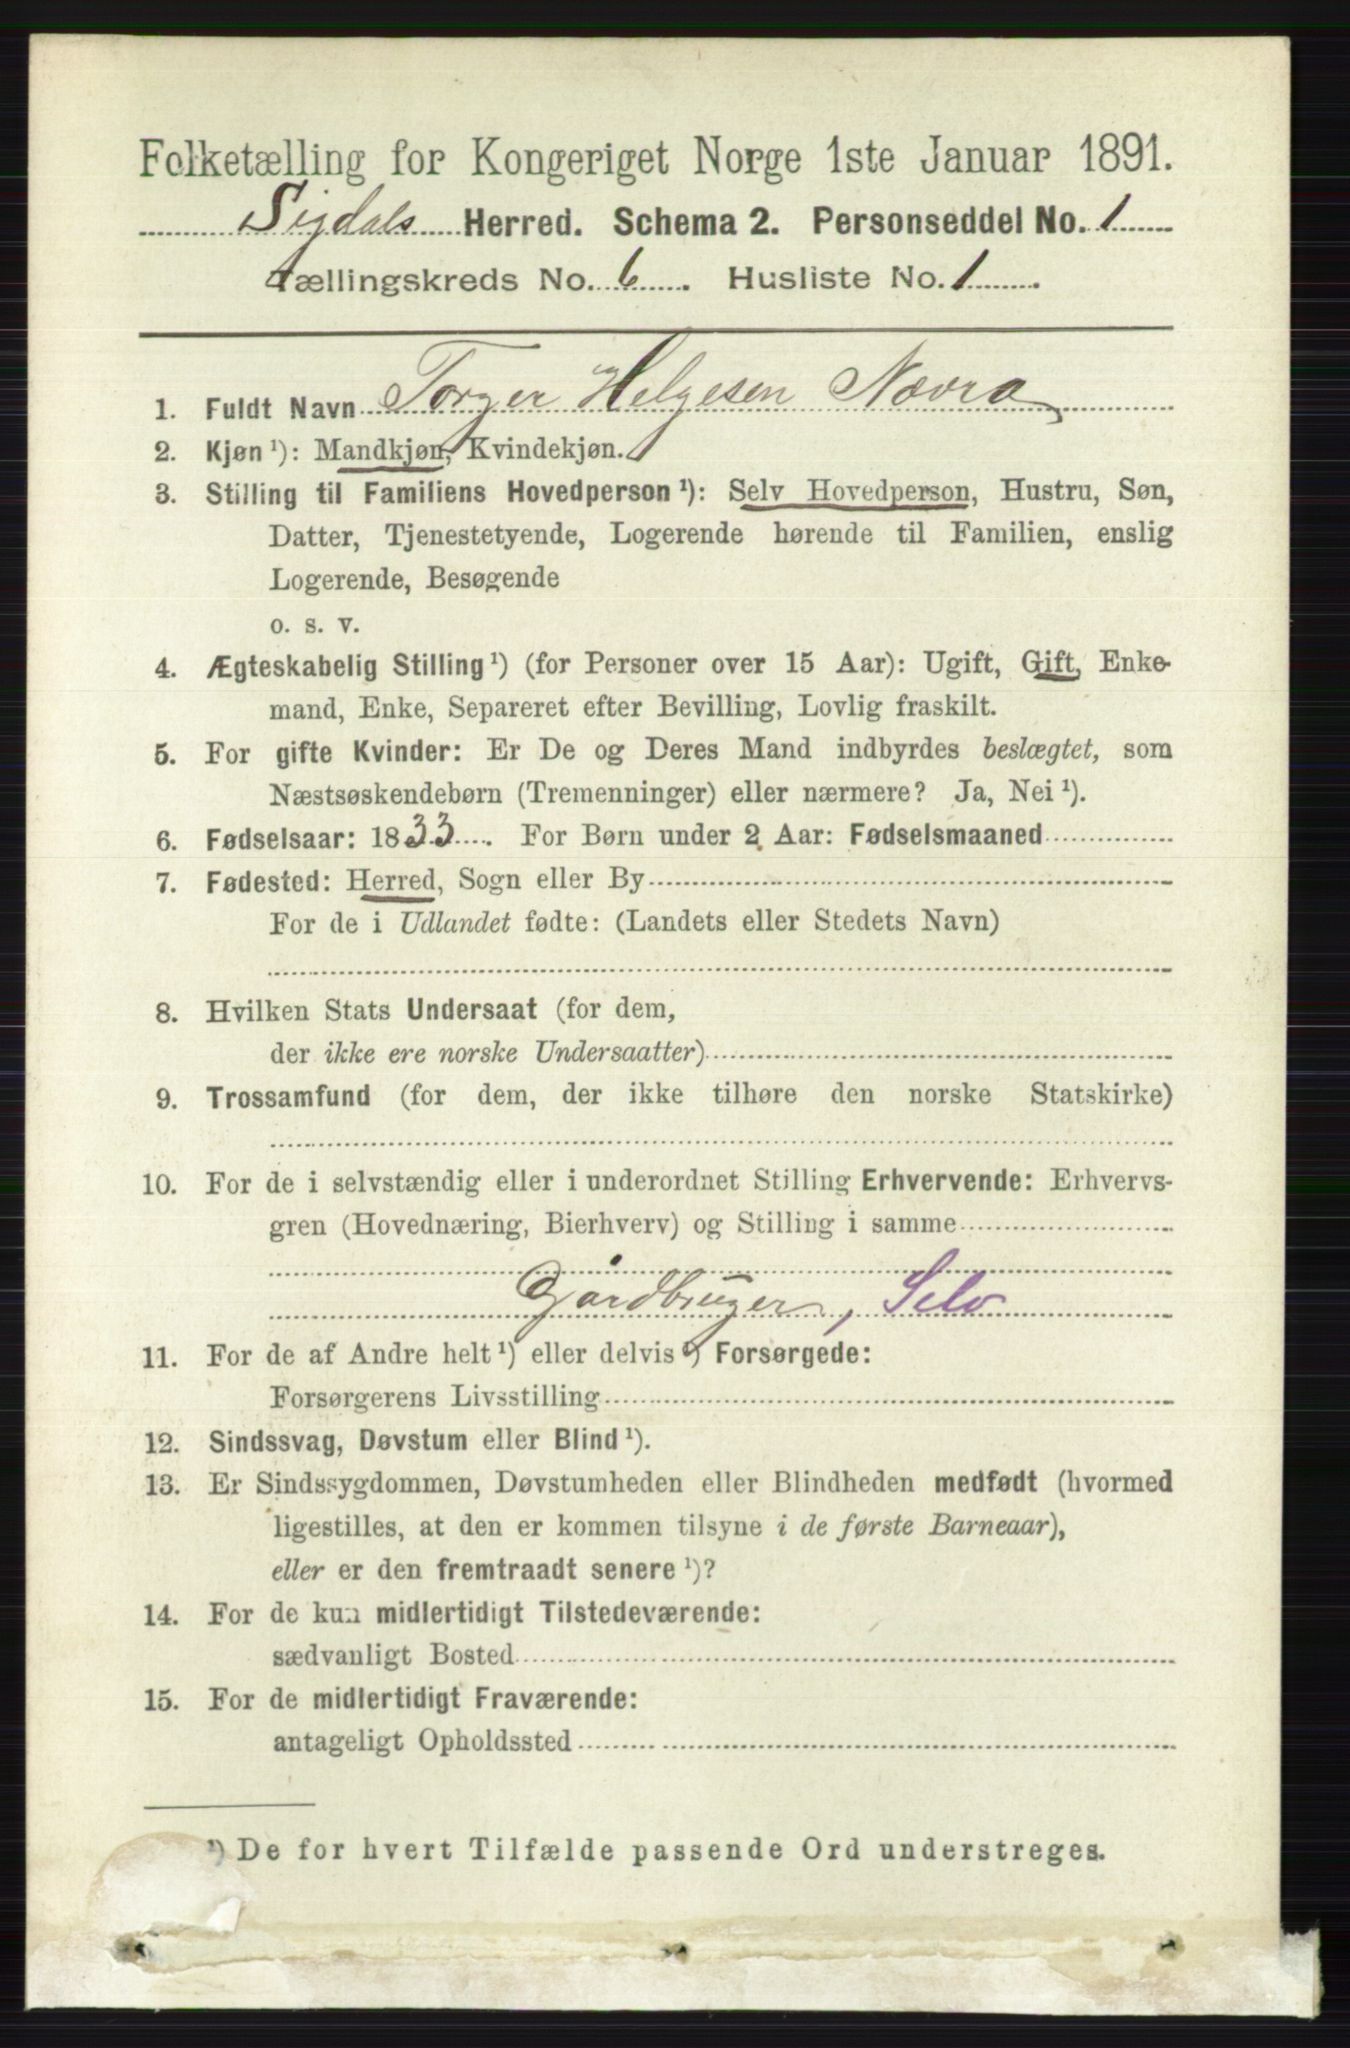 Folketælling for Kongeriget Norge 1ste Januar 1891.
Sigdals Herred. Schema 2. Personseddel No. 1
Tællingskreds No. 6. Husliste No. 1.
1. Fuldt Navn Torger Helgesen Nævra
2. Kjøn ¹): Mandkjøn, Kvindekjøn.
3. Stilling til Familiens Hovedperson ¹): Selv Hovedperson, Hustru, Søn,
Datter, Tjenestetyende, Logerende hørende til Familien, enslig
Logerende, Besøgende
o. s. v.
4. Ægteskabelig Stilling ¹) (for Personer over 15 Aar): Ugift, Gift, Enke-
mand, Enke, Separeret efter Bevilling, Lovlig fraskilt.
5. For gifte Kvinder: Er De og Deres Mand indbyrdes beslægtet, som
Næstsøskendebørn (Tremenninger) eller nærmere? Ja, Nei ¹).
6. Fødselsaar: 1833. For Børn under 2 Aar: Fødselsmaaned
7. Fødested: Herred, Sogn eller By
For de i Udlandet fødte: (Landets eller Stedets Navn)
8. Hvilken Stats Undersaat (for dem,
der ikke ere norske Undersaatter)
9. Trossamfund (for dem, der ikke tilhøre den norske Statskirke)
10. For de i selvstændig eller i underordnet Stilling Erhvervende: Erhvervs-
gren (Hovednæring, Bierhverv) og Stilling i samme
Gårdbruger, Selv
11. For de af Andre helt ¹) eller delvis ¹) Forsørgede:
Forsørgerens Livsstilling
12. Sindssvag, Døvstum eller Blind ¹).
13. Er Sindssygdommen, Døvstumheden eller Blindheden medfødt (hvormed
ligestilles, at den er kommen tilsyne i de første Barneaar),
eller er den fremtraadt senere ¹)?
14. For de kun midlertidigt Tilstedeværende:
sædvanligt Bosted
15. For de midlertidigt Fraværende:
antageligt Opholdssted
¹) De for hvert Tilfælde passende Ord understreges.